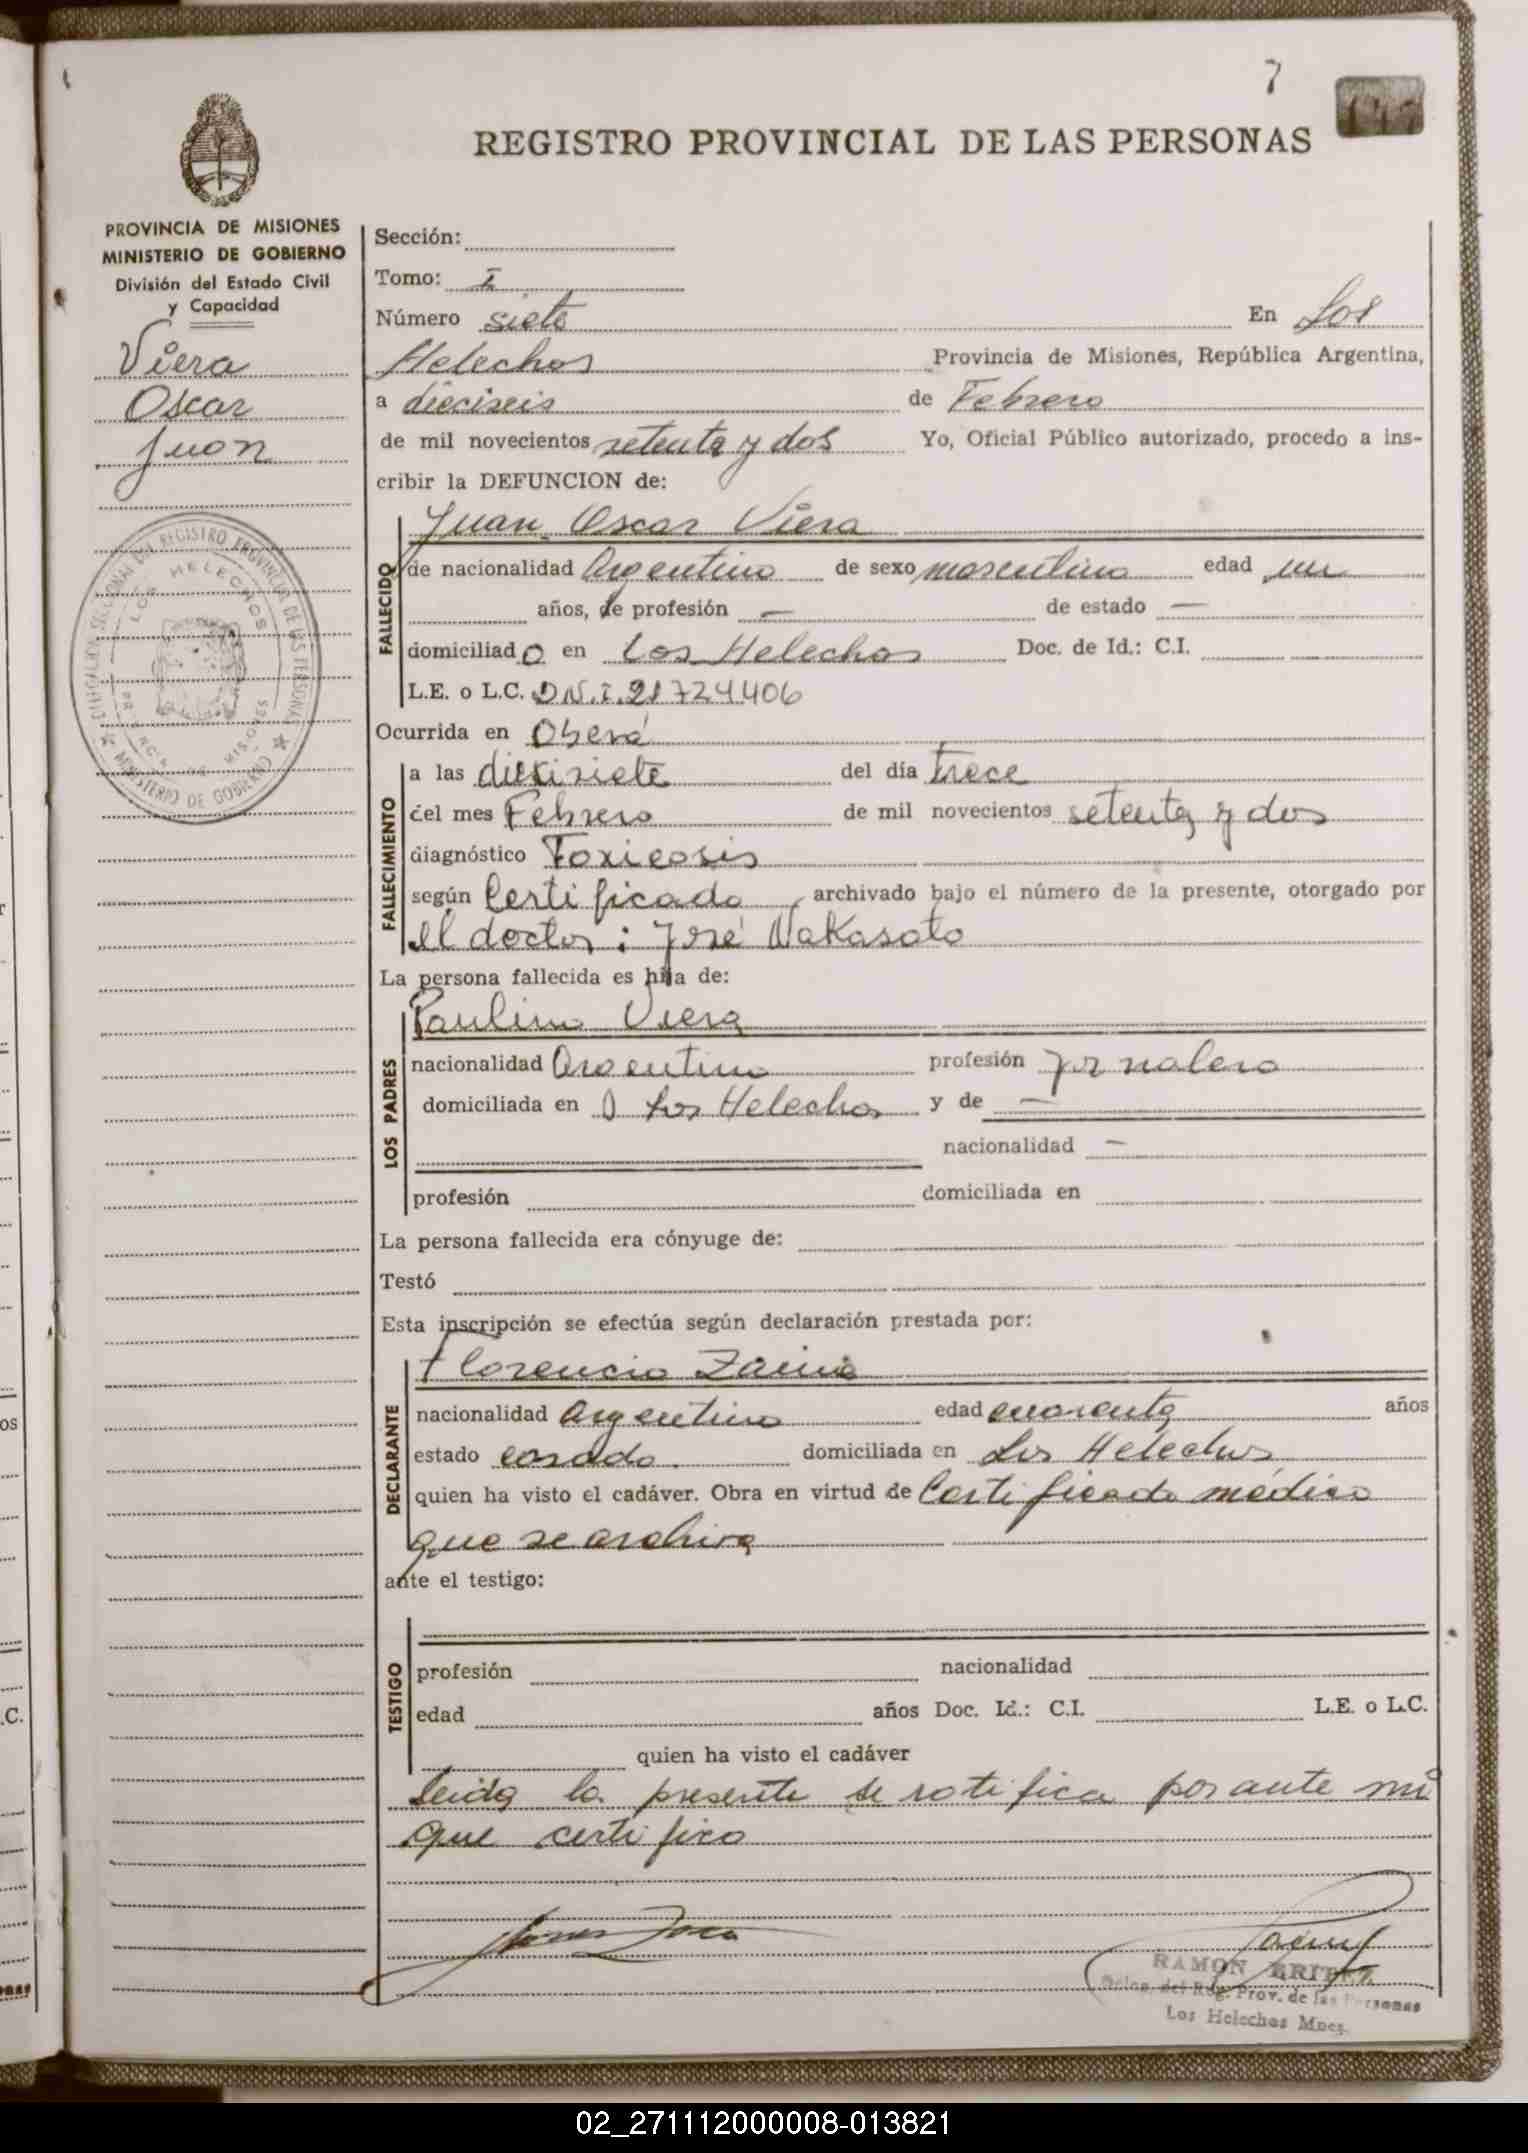 7
REGISTRO PROVINCIAL DE LAS PERSONAS
PROVINCIA DE MISIONES
MINISTERIO DE GOBIERNO
División del Estado Civil
y Capacidad
Viera
Oscar
Juan
DELEGACION SECCIONAL DEL REGISTRO PROVINCIAL DE LAS PERSONAS
LOS HELECHOS
PROVINCIA DE MISIONES
MINISTERIO DE GOBIERNO
Sección:
Tomo: I
Número siete En Los
Helechos Provincia de Misiones, República Argentina,
a dieciseis de Febrero
de mil novecientos setenta y dos Yo, Oficial Público autorizado, procedo a ins-
cribir la DEFUNCION de:
FALLECIDO
Juan Oscar Viera
de nacionalidad Argentino de sexo masculino edad un
años, de profesión — de estado —
domiciliado en Los Helechos Doc. de Id.: C.I.
L.E. o L.C. D.N.I. 21724406
Ocurrida en Oberá
FALLECIMIENTO
a las diecisiete del día trece
del mes Febrero de mil novecientos setenta y dos
diagnóstico Toxicosis
según Certificado, archivado bajo el número de la presente, otorgado por
el doctor: José Nakasato
La persona fallecida es hija de:
LOS PADRES
Paulino Viera
nacionalidad Argentino profesión Jornalero
domiciliada en Los Helechos y de —
nacionalidad —
profesión domiciliada en
La persona fallecida era cónyuge de:
Testó
Esta inscripción se efectúa según declaración prestada por:
DECLARANTE
Florencio
nacionalidad Argentino edad cuarenta años
estado casado. domiciliada en Los Helechos
quien ha visto el cadáver. Obra en virtud de Certificado médico
que se archiva
ante el testigo:
TESTIGO
profesión nacionalidad
edad años Doc. Id.: C.I. L.E. o L.C.
quien ha visto el cadáver
Leida la presente se ratifica por ante mi
que certifico
RAMON
del Reg. Prov. de las Personas
Los Helechos Mnes.
02_271112000008-013821